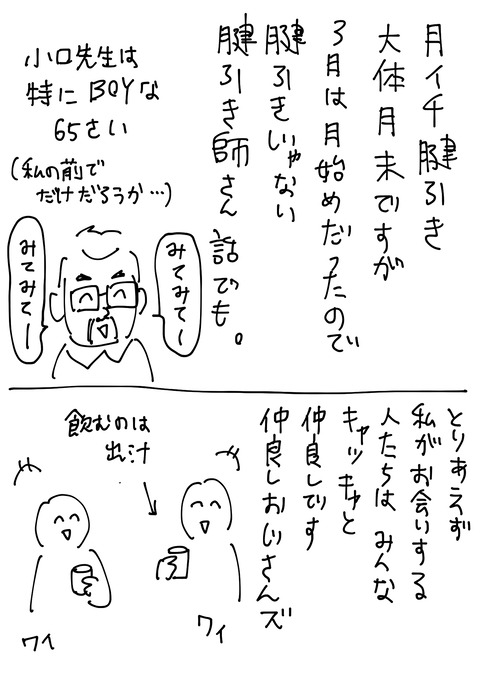 月イチ腱引き
大体月末ですが
3月は月始めだったので
腱引きじゃない
腱引き師さん話でも。
小口先生は
特にBOYな
65さい
(私の前で
だけだろうか…)
みてみてー
みてみてー
とりあえず
私がお会いする
人たちはみんな
キャッキャと
仲良しです
仲良しおじさんズ
飲むのは
出汁
ワイ
ワイ